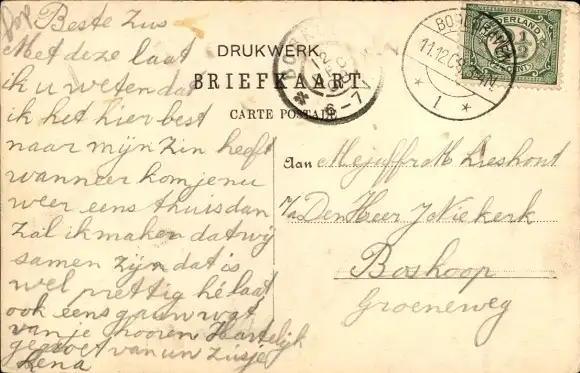 Beste Zus
Met deze laat
ik u weten dat
ik het hier best
naar mijn zin heeft
wanneer kom je nu
weer eens thuis dan
zal ik maken dat wij
samen zijn dat is
wel prettig hé laat
ook eens gauw wat
van je hooren Hartelijk
gegroet van un Zusje
Lena
DRUKWERK
BRIEFKAART
CARTE POSTALE
Aan Mejuffr M Lieshout
p/a Den Heer J Niekerk
Boskoop
Groeneweg
11.12.09
* 1 *
6-7
NEDERLAND
2½
CENT